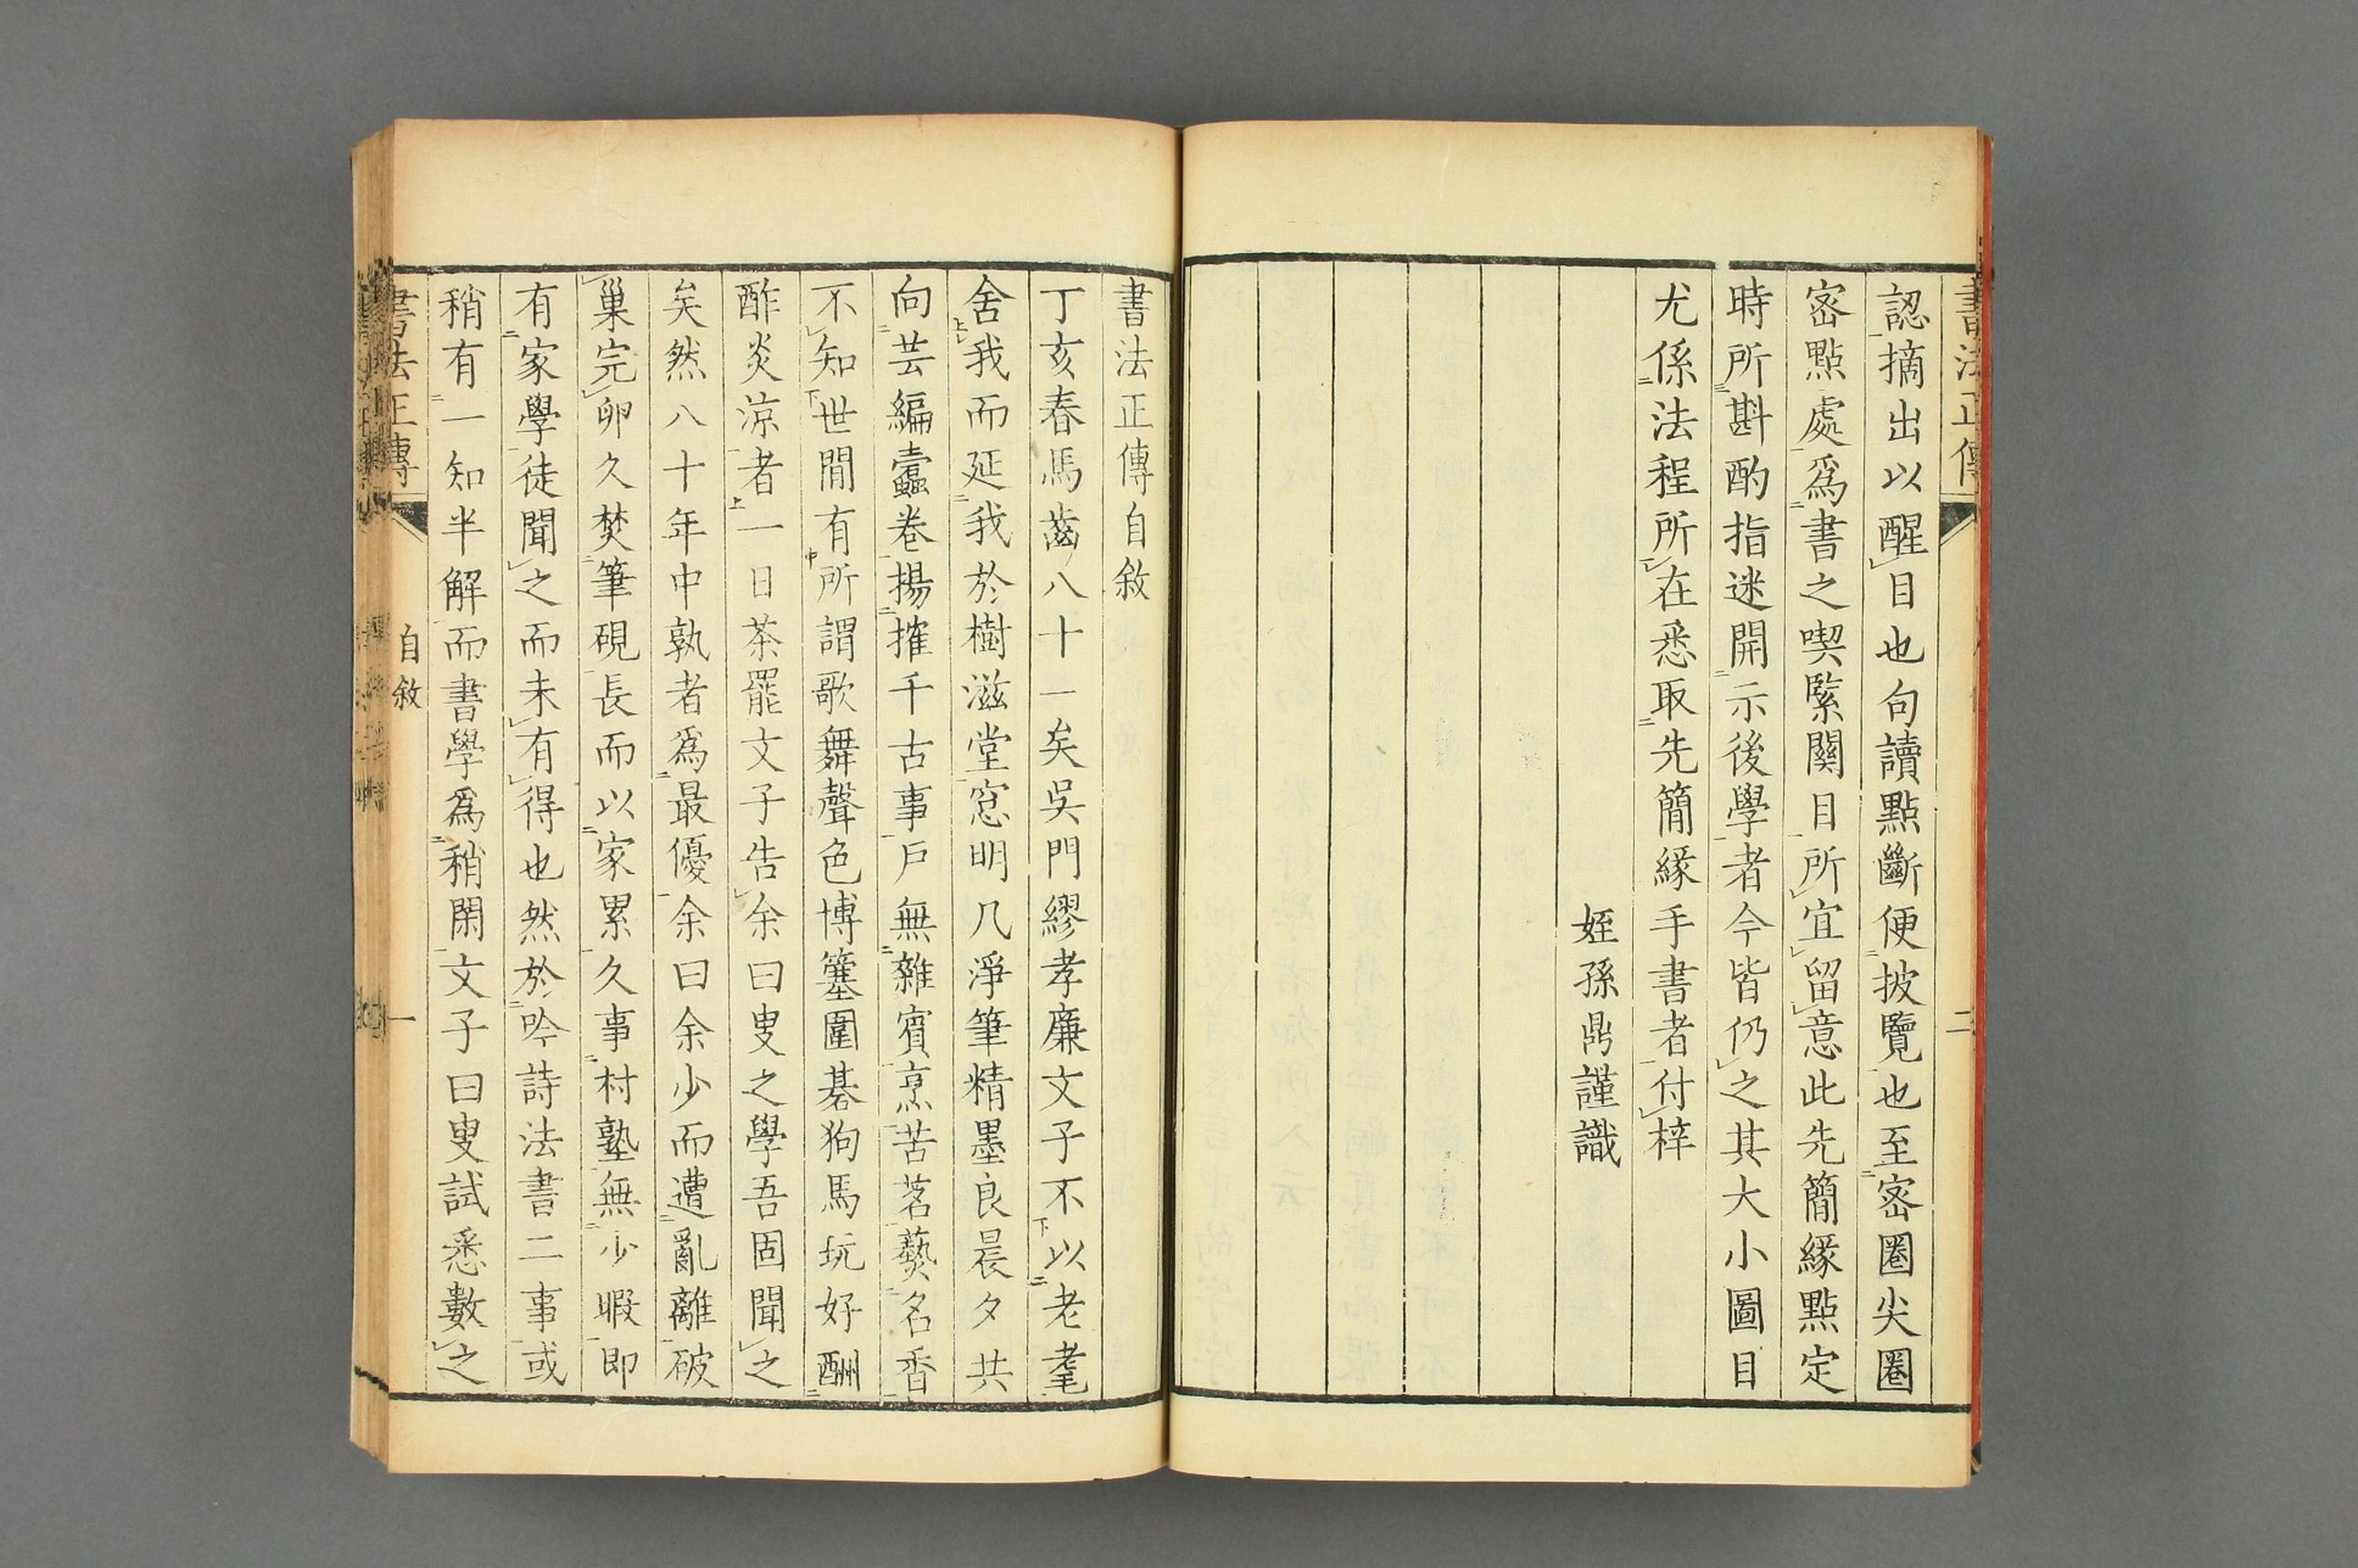 認摘出以醒目也句讀點斷便披覽也至密圈尖圈
密點處爲書之喫緊關目所宜留意此先簡緣點定
時所斟酌指迷開示後學者今皆仍之其大小圖目
尤係法程所在悉取先簡緣手書者付梓
姪孫鼎謹識
書法正傳自敘
丁亥春馬齒八十一矣吳門繆孝廉文子不以老耄
舍我而延我於樹滋堂窓明几淨筆精墨良晨夕共
向芸編蠹卷揚搉千古事戶無雜賓烹苦茗爇名香
不知世間有所謂歌舞聲色博簺圍碁狗馬玩好酬
酢炎涼者一日茶罷文子告余曰叟之學吾固聞之
矣然八十年中孰者爲最優余曰余少而遭亂離破
巢完卵久焚筆硯長而以家累久事村塾無少暇即
有家學徒聞之而未有得也然於吟詩法書二事或
稍有一知半解而書學爲稍閑文子曰叟試悉數之
書法正傳
自敘
一